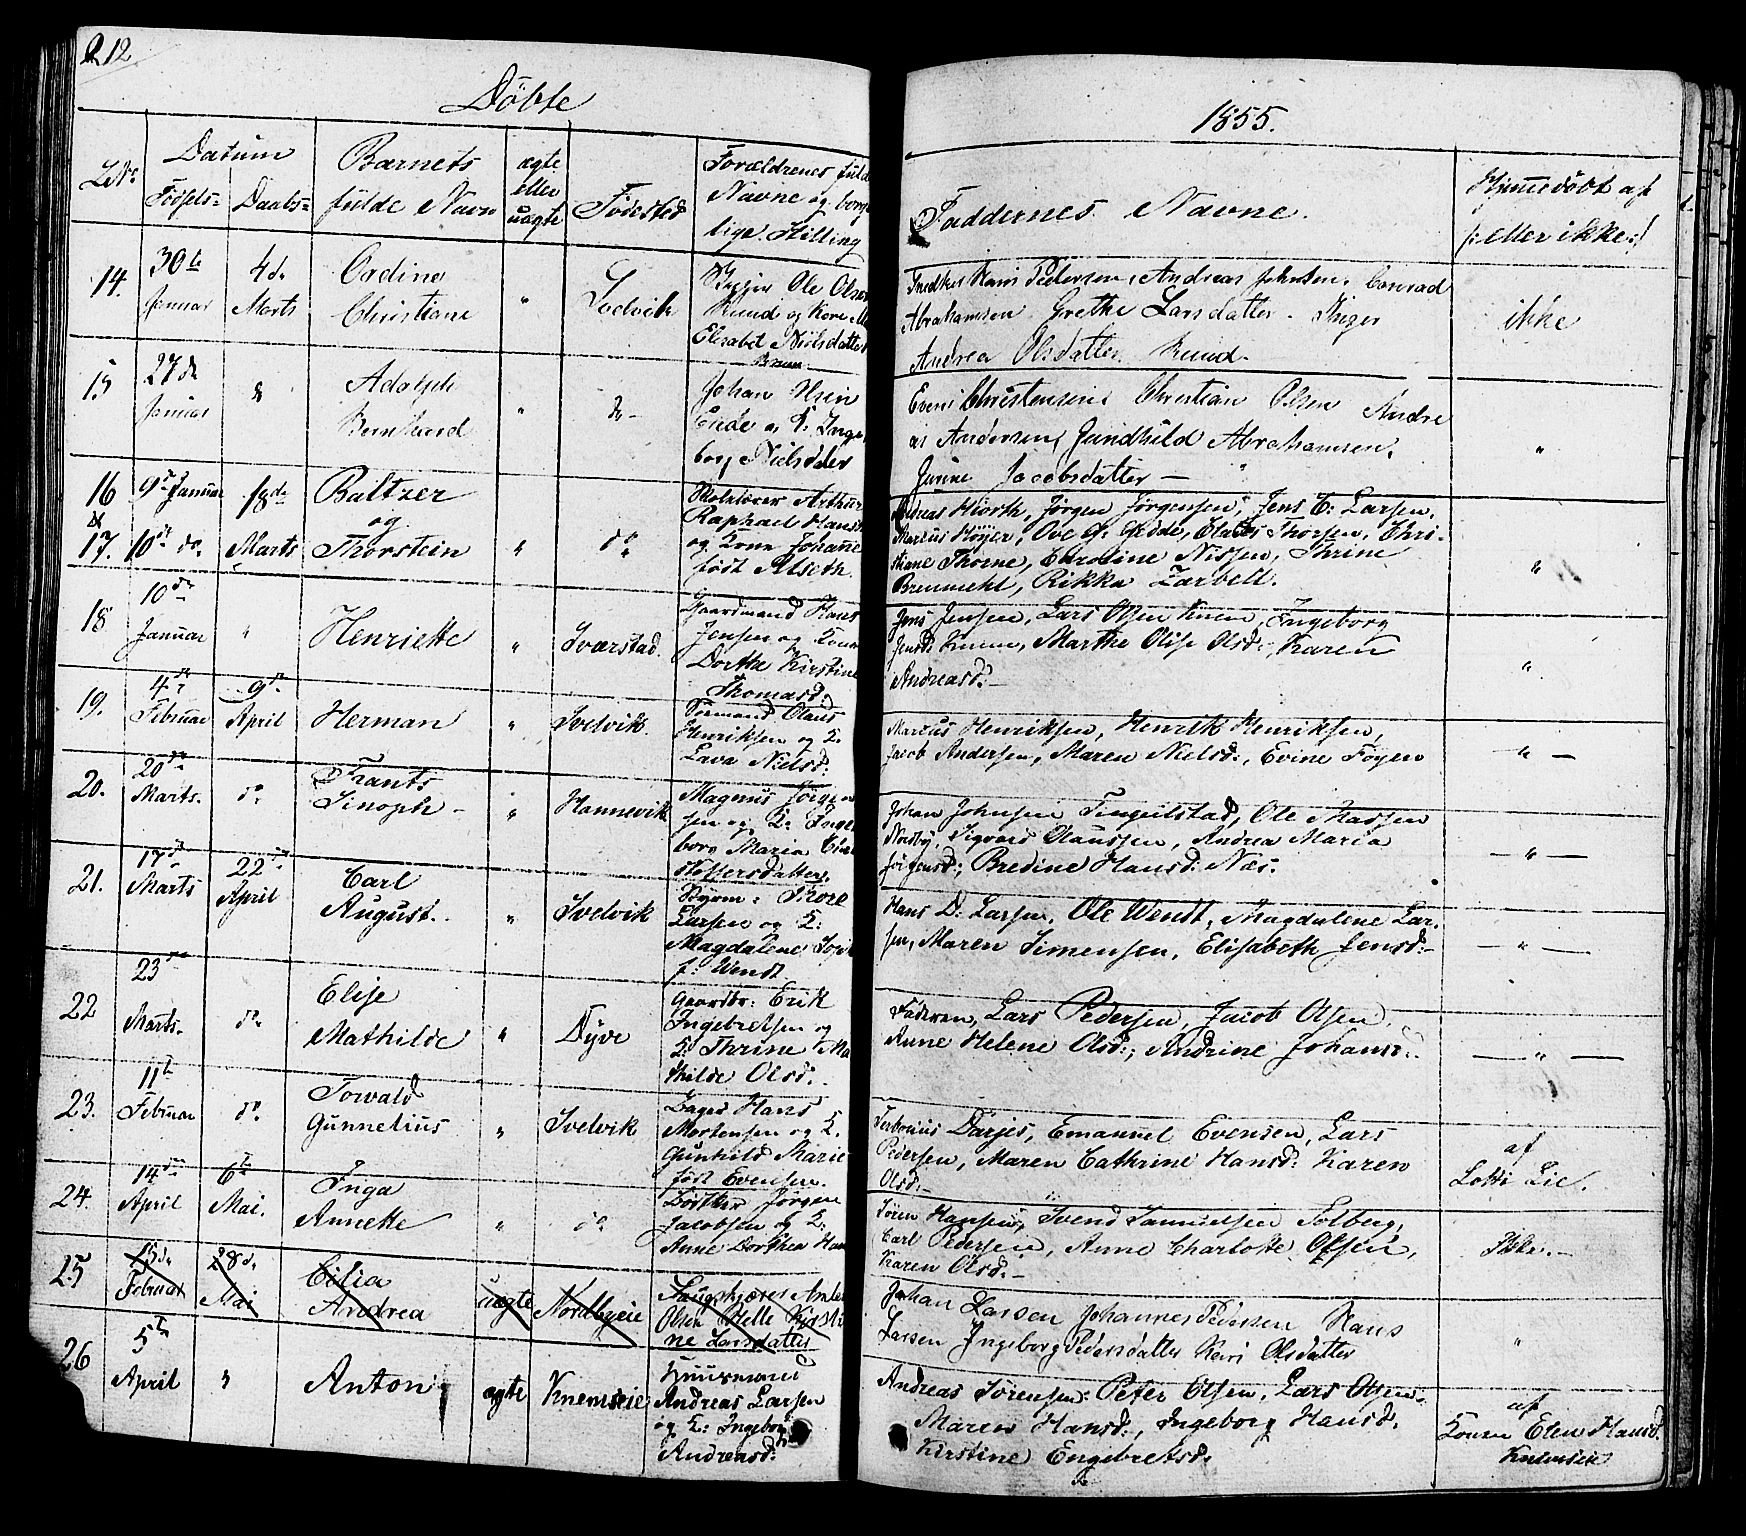 212
Döbte
1855.
Datum
Födsels= Daabs=
Barnets
fulde Navn
ægte
eller
uægte
Födested
Forældrenes fulde
Navne og borger
lige Stilling
Faddernes Navne.
Hjemmedöbt af
/: eller ikke :/
14.
30te
Januar
4de
Marts
Christiane
"
Ole Olsen
Elisabet Nielsdatter
Hans Pedersen, Andreas Johnsen, Conrad
Abrahamsen Grethe Larsdatter. Inger
Andrea Olsdatter
ikke
15
27de
Januar
Adolph
Bernhard
"
Johan
Nielsdtr
Even Christensen Christian Olsen Andre
as Andersen Gundhild Abrahamsen,
Jacobsdatter —
"
16
&
17.
9de Januar
10de do.
18de
Marts
Baltzer
og
Thorstein
"
do
Arthur
Raphael Hansen
og Kone Johanne
född Alseth.
Hiorth, Jørgen Jørgensen, Jens C: Larsen,
Marcus Höyer, Ove G. Gedde, Thorsen, Chri-
stiane Thorne, Caroline Nissen, Thrine
Rikka
"
18
10de
Januar
"
Henriette
"
Sværstad.
Gaardmand Hans
Jensen og Kone
Dorthe Kirstine
Thomasd:
Jens Jensen, Lars Olsen Knem, Ingeborg
Jensd: Knem, Marthe Olise Olsd:, Karen
Andreasd: —
"
19.
4de
Februar
9de
April
Herman
"
Svelvik.
Sömand Olaus
Henriksen og K:
Lava Nielsd:
Marcus Henriksen, Henrik Henriksen,
Jacob Andersen, Maren Nielsd:, Evine Föyen
— " —
20.
20de
Marts.
do.
Frants
Sinoph —
"
Hannevik
Magnus Jörgen
sen og K: Inge
borg Maria Chri
stoffersdatter.
Johan Johnsen Tingulstad, Ole Madsen
Nordby, Sigvard Olaussen, Andrea Maria
Jörgensd:, Bredine Hansd: Næs.
— " —
21.
17de
Marts
22de
April
Carl
August.
"
Svelvik
Styrm: Thore
Larsen og K:
Magdalene
f: Wendt
Hans D: Larsen, Ole Wendt, Magdalene Lar-
sen, Maren Simensen, Elisabeth Jensd: —
— " —
22
23de
Marts.
do.
Elise
Mathilde
"
Dyve
Gaardbr: Erik
Ingebretsen og
K: Thrine Ma
thilde Olsd:
Faderen, Lars Pedersen, Jacob Olsen,
Anne Helene Olsd:, Andrine Johansd:
— " —
23.
11te
Februar
do.
Torvald
Gunnelius
"
Svelvik
Bager Hans
Mortensen og K.
Gunhild Marie
född Evensen.
Darjes, Emanuel Evensen, Lars
Pedersen, Maren Cathrine Hansd: Karen
Olsd: —
af
Lotti Lie.
24.
14de
April
6te
Mai.
Inga
Annette
"
do
Bödker Jörgen
Jacobsen og K:
Anne Dorthea Han
Sören Hansen, Svend Samuelsen Solberg,
Carl Pedersen, Anne Charlotte Olsen,
Karen Olsd: —
Ikke. —
25
15de
Februar
28de
Mai
Cilia
Andrea
uægte
Nordbyeie
Olsen Helle Kirsti
ne Larsdatter
Johan Larsen Johannes Pedersen Hans
Larsen Ingeborg Pedersdatter Kari Olsdatter
"
26
5te
April
"
Anton
ægte
Knemseie
Huusmand
Andreas Larsen
og K: Ingeborg
Andreasd:
Andreas Sörensen: Peter Olsen, Lars Olsen,
Maren Hansd:, Ingeborg Hansd:
Kirstine Engebretsd:
af
Konen Elen Hansd: